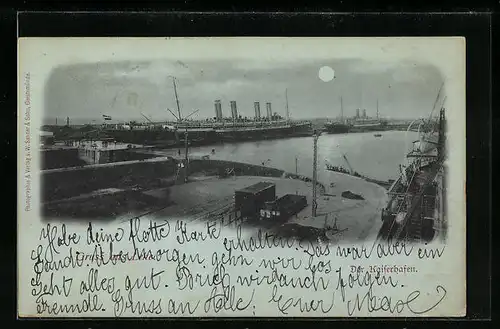 Photographie & Verlag v. W. Sander & Sohn, Geestemünde.
Der Kaiserhafen.
Habe deine flotte Karte erhalten. Das war aber ein
gehn wir los
Geht alles gut. Brief wird auch folgen.
Freundl. Gruss an Alle, Euer Max